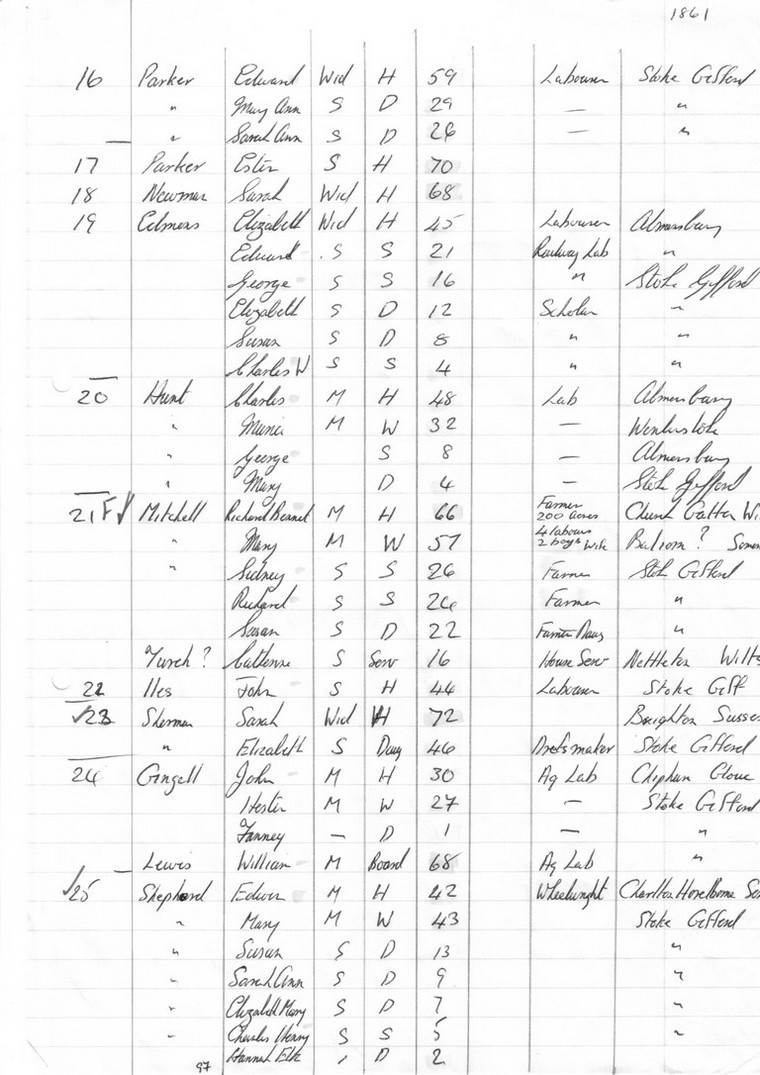 1861
16 Parker Edward Wid H 59 Labourer Stoke Gifford
" Mary Ann S D 29 — "
" Sarah Ann S D 26 — "
17 Parker Ester S H 70
18 Newman Sarah Wid H 68
19 Edmons Elizabeth Wid H 45 Labourer Almonsbury
Edward S S 21 Railway Lab "
George S S 16 " Stoke Gifford
Elizabeth S D 12 Scholar "
Susan S D 8 " "
Charles W S S 4 " "
20 Hunt Charles M H 48 Lab Almonsbury
" Maria M W 32 —
" George S 8 — Almonsbury
" Mary D 4 — Stoke Gifford
21 F Mitchell Richard M H 66 Farmer 200 acres Church
" Mary M W 57 4 labours 2 boys Wife ?
" Sidney S S 26 Farmer Stoke Gifford
Richard S S 24 Farmer "
Susan S D 22 Farmer Daug "
? Catherine S Serv 16 House Serv Nettleton Wilts
22 Iles John S H 44 Labourer Stoke Giff
23 Sherman Sarah Wid H 72 Brighton Susse
" Elizabeth S Daug 46 Dressmaker Stoke Gifford
24 Gingell John M H 30 Ag Lab Glouc
Hester M W 27 — Stoke Gifford
Fanney — D 1 — "
Lewis William M Board 68 Ag Lab "
25 Shepherd Edwin M H 42 Wheelwright
" Mary M W 43 Stoke Gifford
" Susan S D 13 "
" Sarah Ann S D 9 "
" Elizabeth Mary S D 7 "
" Charles Henry S S 5 "
Hannah D 2
97